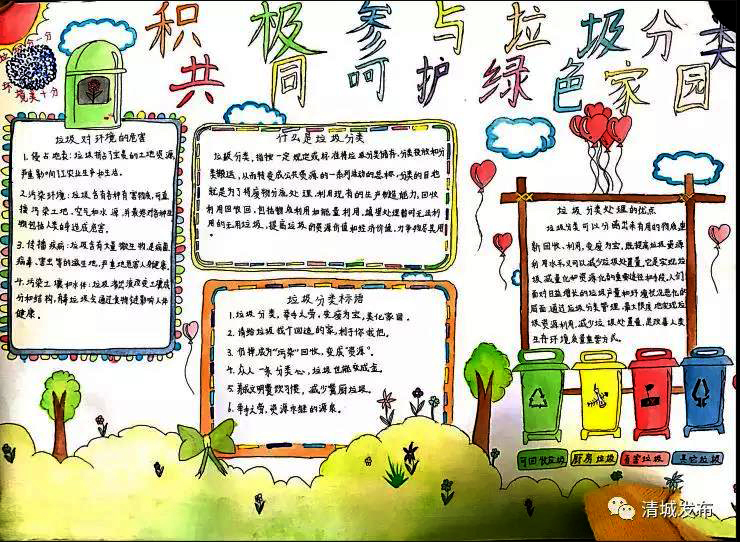 积极参与垃圾分类
共同呵护绿色家园
环境美十分
垃圾对环境的危害
1.侵占地表:垃圾侵占了宝贵的土地资源,
严重影响了工农业生产和生活。
2.污染环境:垃圾含有各种有害物质,可直
接污染土地、空气和水源,并最终对各种生
物包括人类等造成危害。
3.传播疾病:垃圾含有大量微生物,是病菌、
病毒、害虫等的滋生地,严重地危害人身健康。
4.污染土壤和水体:
健康。
什么是垃圾分类
垃圾分类,指按一定规定或标准将垃圾分类储存、分类投放和分
类搬运,从而转变成公共资源的一系列活动的总称。分类的目的
就是为了将废物分流处理,利用现有的生产制造能力,回收
利用回收回,包括物质利用和能量利用,填埋处置暂时无法利
用的无用垃圾,提高垃圾的资源价值和经济价值,力争物尽其用
。
垃圾分类标语
1.垃圾分类,举手之劳,变废为宝,美化家园。
2.请给垃圾找个回适的家,利于你我他。
3.
4.众人一条分类心,垃圾也能变成金。
5.养成文明餐饮习惯,减少餐厨垃圾。
6.举手之劳,资源永继的源泉。
垃圾分类处理的优点
垃圾分类可以分离出来有用的物质,重
新回收、利用,变废为宝,既提高垃圾资源
利用水平又可以减少垃圾处置量,它是实现垃
圾减量化和资源化的重要途径和手段,人们
面对日益增长的垃圾产量和环境状况恶化的
局面,通过垃圾分类管理,最大限度地实现垃
圾资源利用,减少垃圾处置量,是改善人类
生存环境质量重要方式。
可回收垃圾
厨房垃圾
有害垃圾
其它垃圾
清城发布